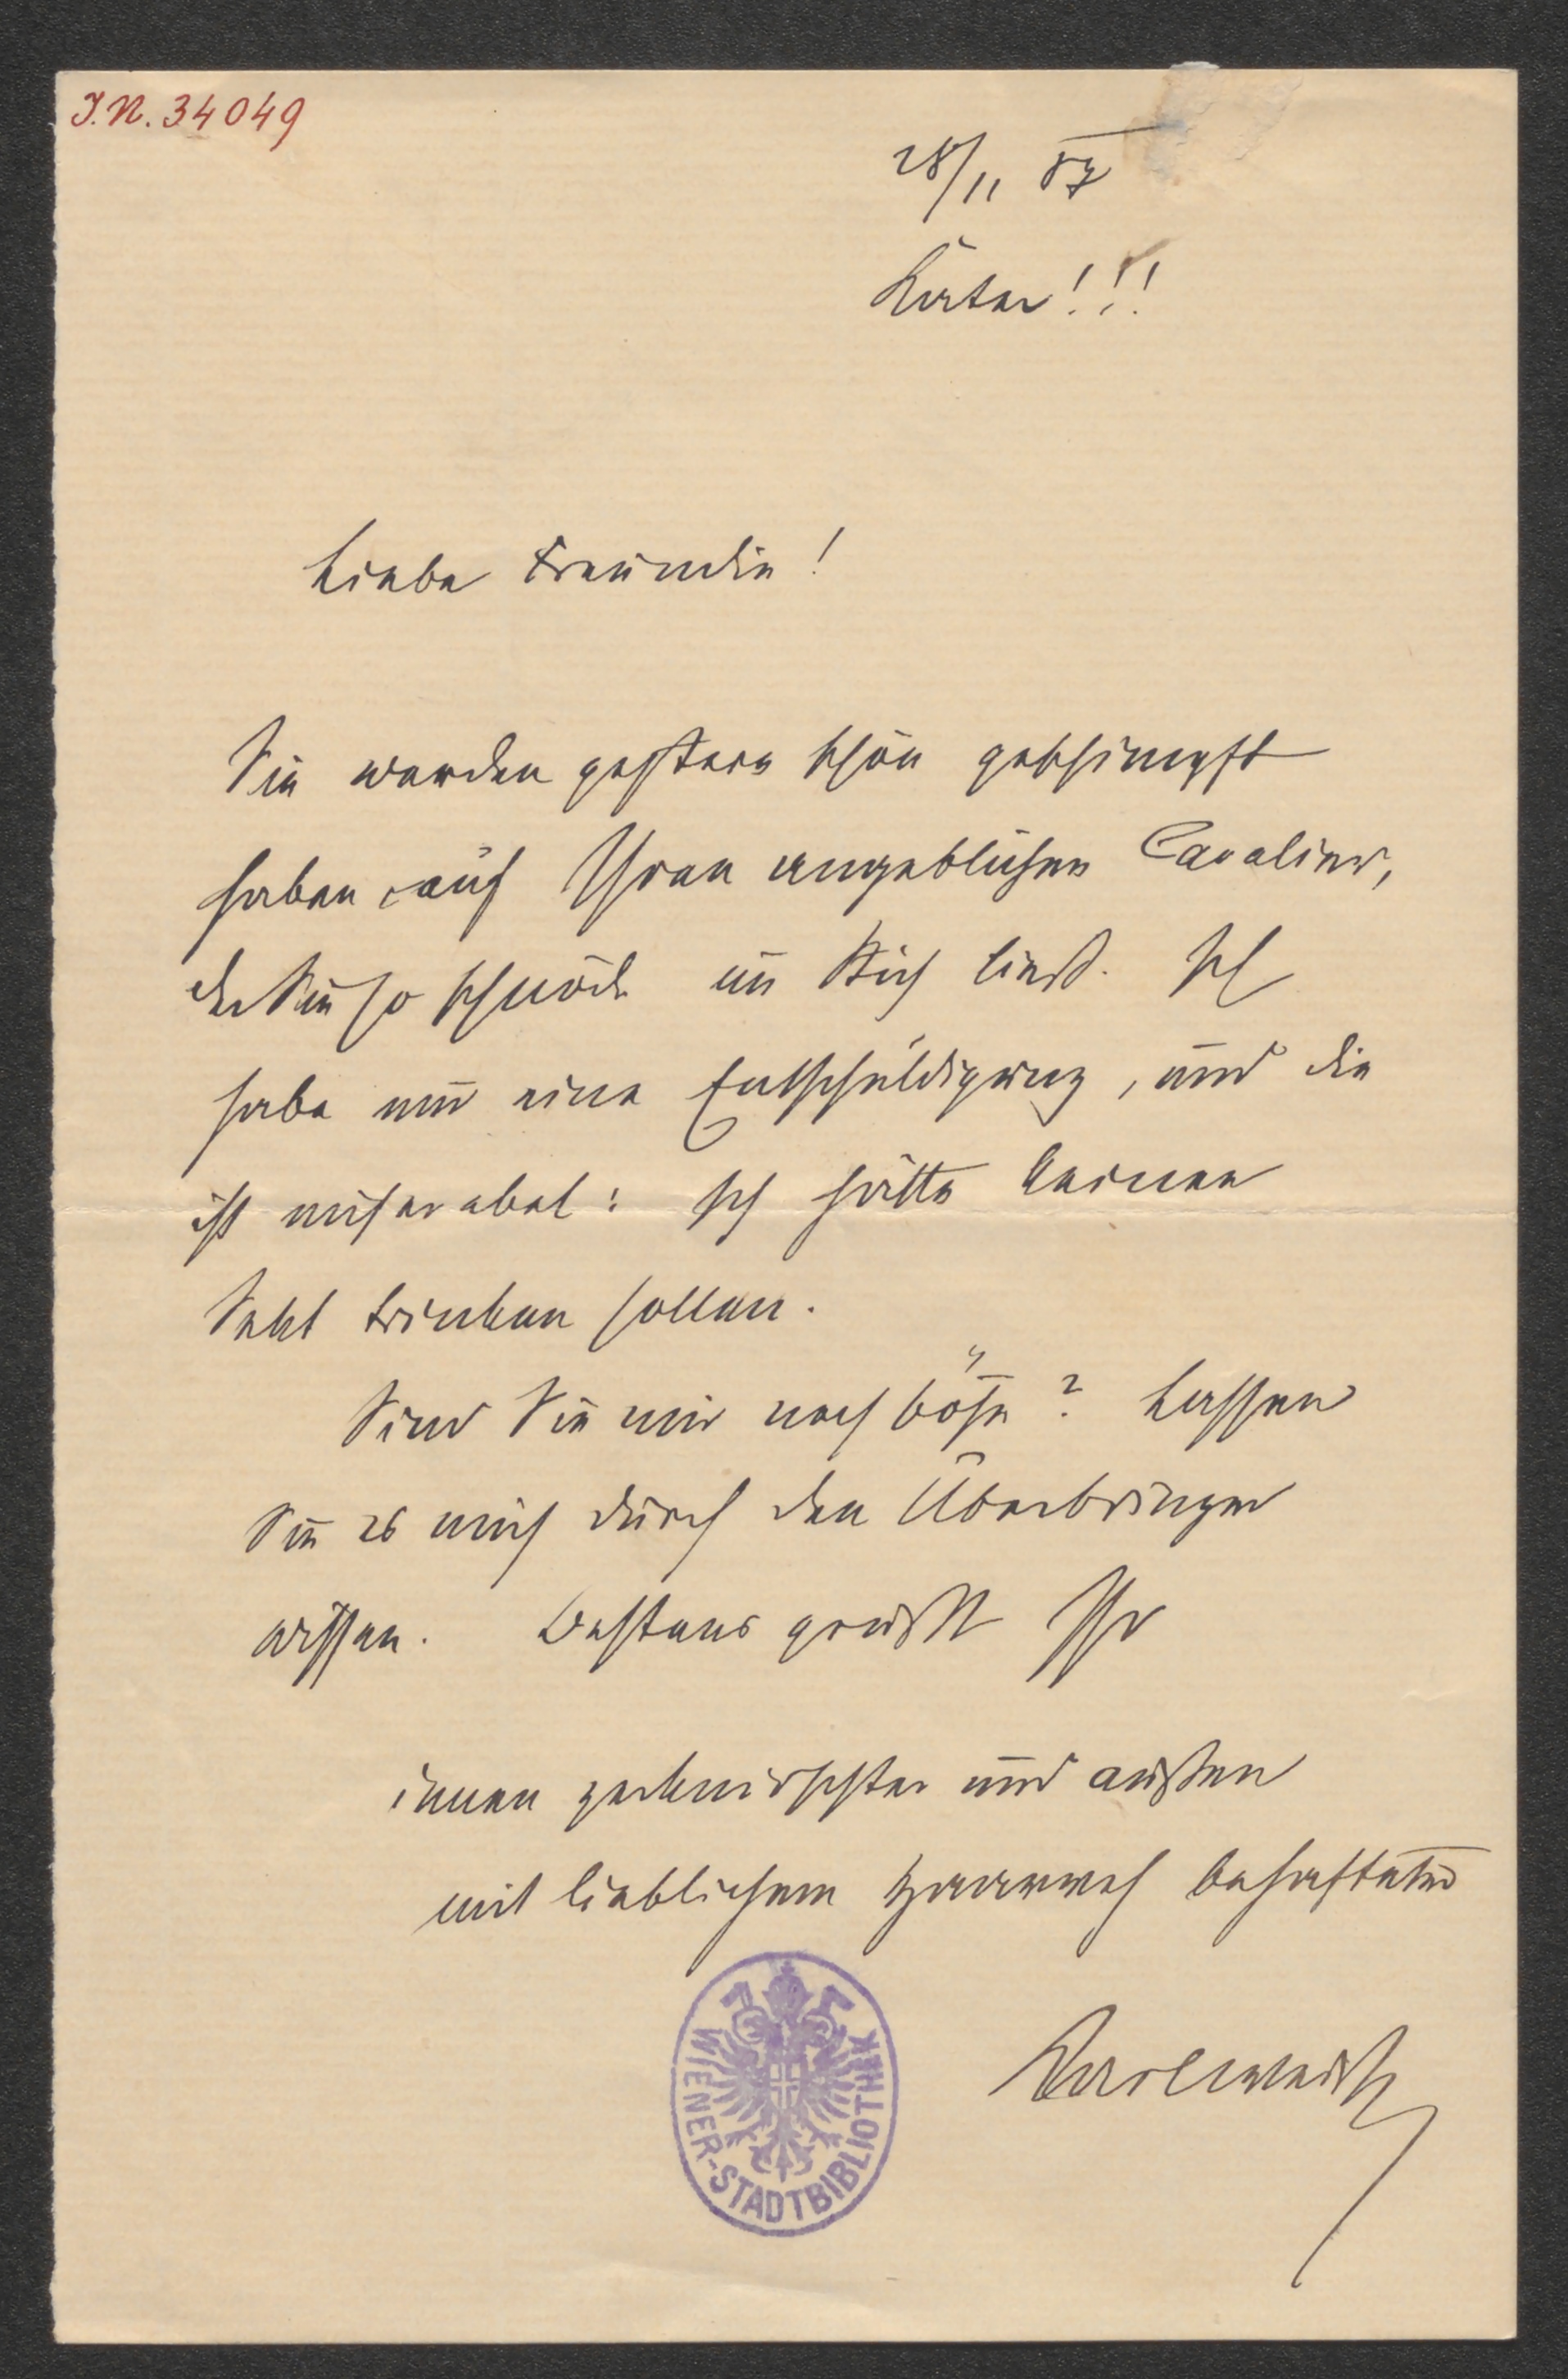 J.N. 34049
28/11 87
Kater!!!
Liebe Freundin!
Sie werden gestern schön geschimpft
haben auf Ihren angeblichen Cavalier,
der Sie so schnöde im Stich ließ. Ich
habe nur eine Entschuldigung, und die
ist miserabel: Ich hätte keinen
Sekt trinken sollen.
Sind Sie mir noch böse? Lassen
Sie es mich durch den Überbringer
wissen. Bestens grüßt Ihr
innen zerknirschter und außen
mit lieblichem Haarweh behafteter
Karlweis
WIENER-STADTBIBLIOTHEK